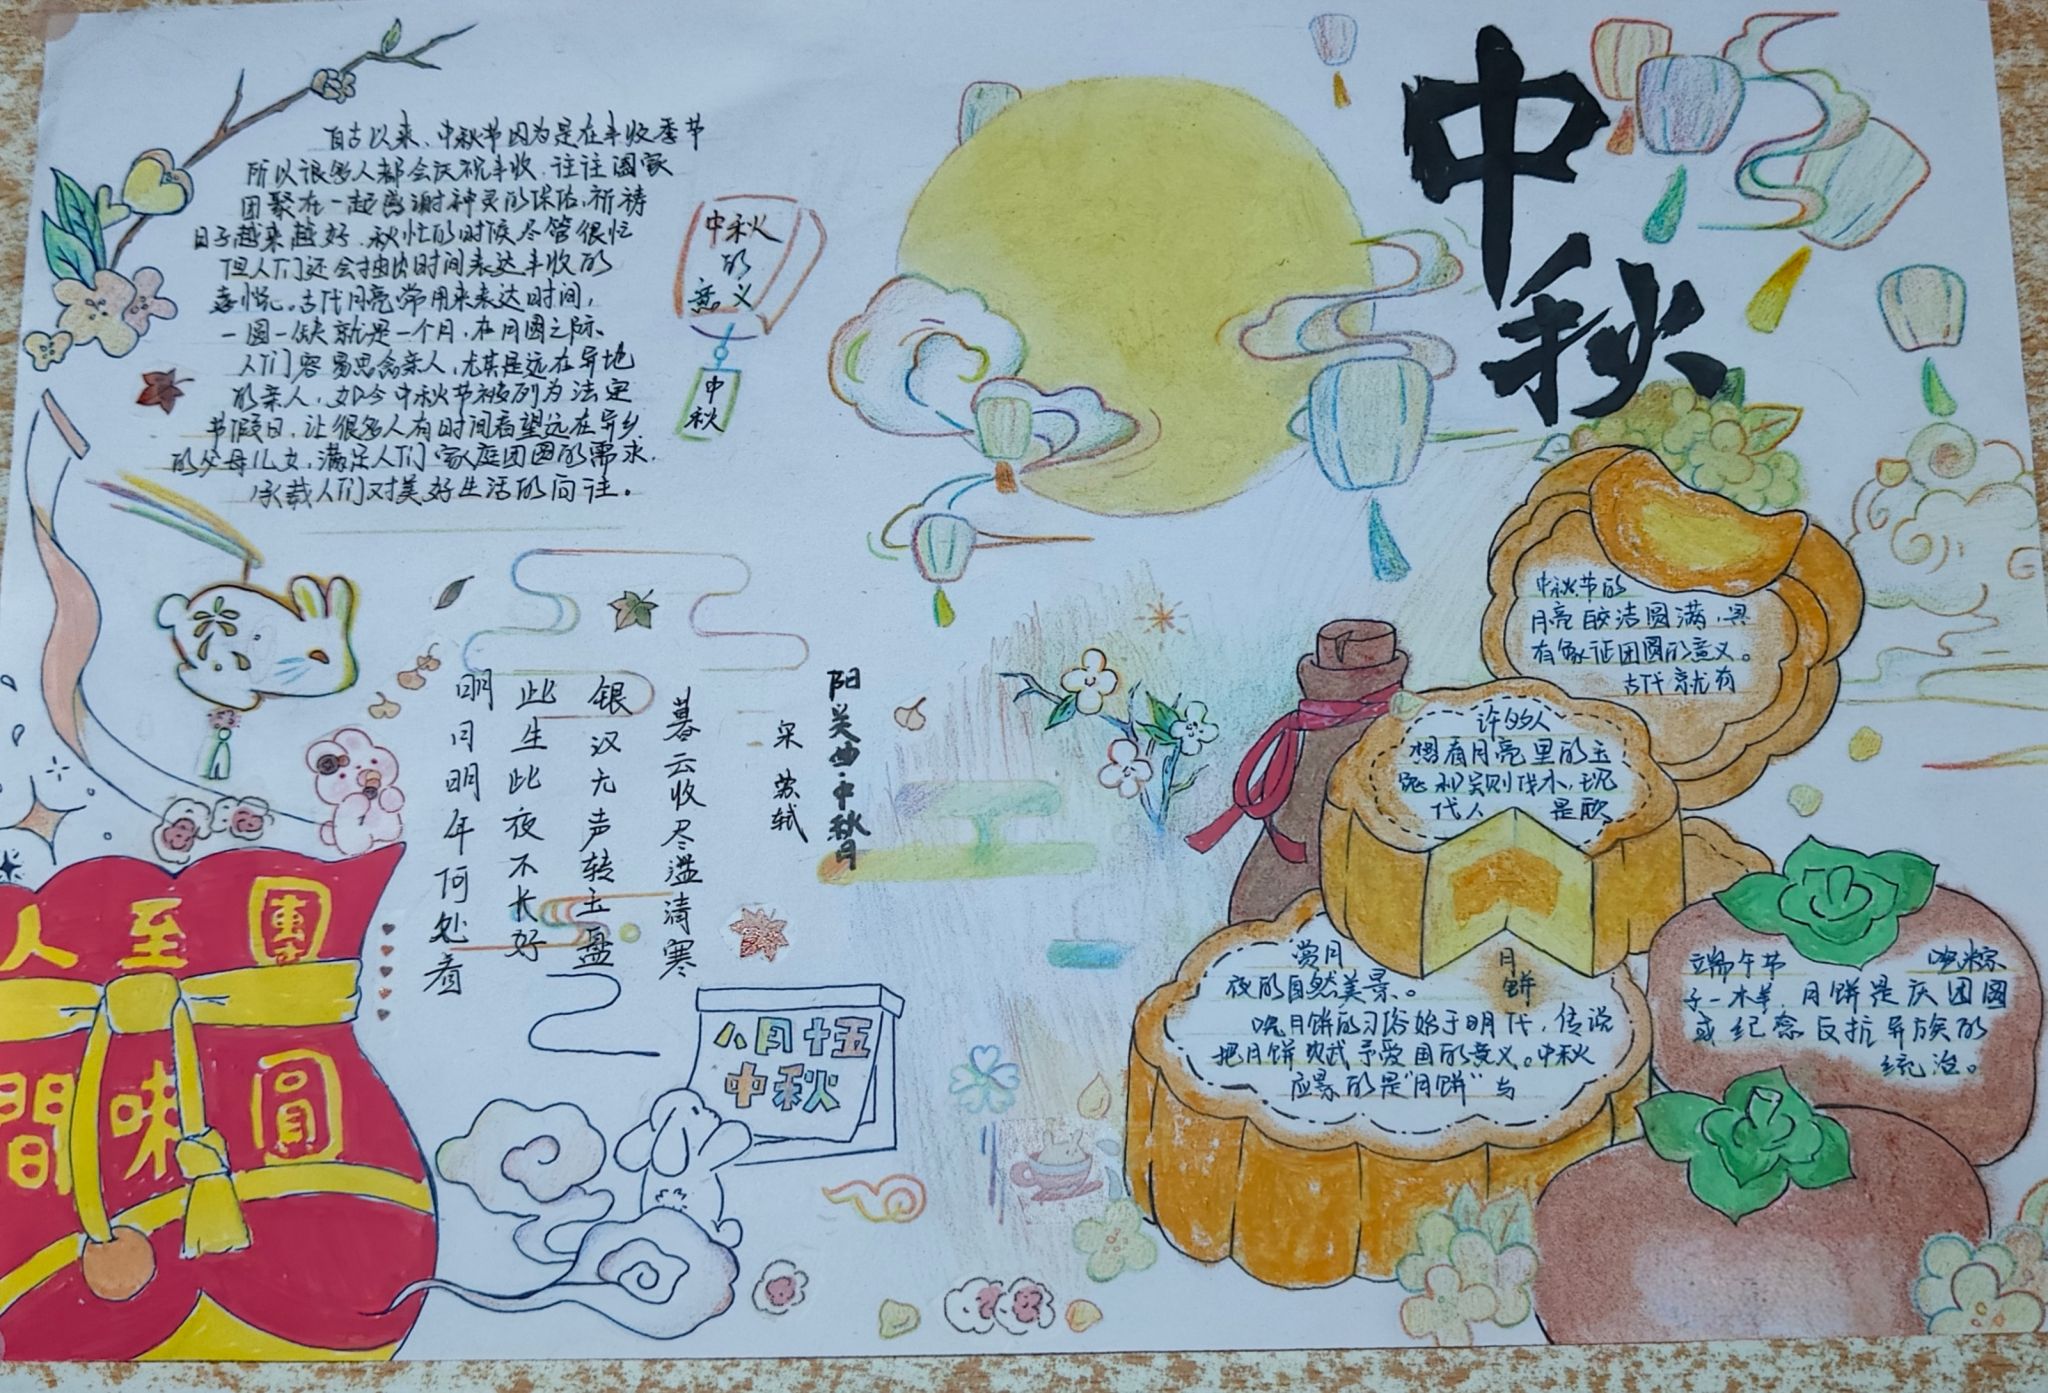 中秋
自古以来、中秋节因为是在丰收季节
所以很多人都会庆祝丰收.往往阖家
团聚在一起感谢神灵的保佑,祈祷
日子越来越好.秋忙的时候尽管很忙
但人们还会抽出时间表达丰收的
喜悦。古代月亮常用来表达时间,
一圆一缺就是一个月,在月圆之际、
人们容易思念亲人,尤其是远在异地
的亲人,如今中秋节被列为法定
节假日,让很多人有时间看望远在异乡
的父母儿女,满足人们家庭团圆的需求,
承载人们对美好生活的向往。
中秋
的
意义
中
秋
阳关曲·中秋月
宋 苏轼
暮云收尽溢清寒
银汉无声转玉盘
此生此夜不长好
明月明年何处看
人至團
間味圓
八月十五
中秋
中秋节的
月亮皎洁圆满,具
有象征团圆的意义。
古代就有
许多人
想着月亮里的玉
兔和吴刚伐木,现
代人 是欣
赏月
夜的自然美景。
月
饼
吃月饼的习俗始于明代,传说
把月饼赋予爱国的意义。中秋
应景的是"月饼"与
端午节 吃粽
子一木羊,月饼是庆团圆
或纪念反抗异族的
统治。